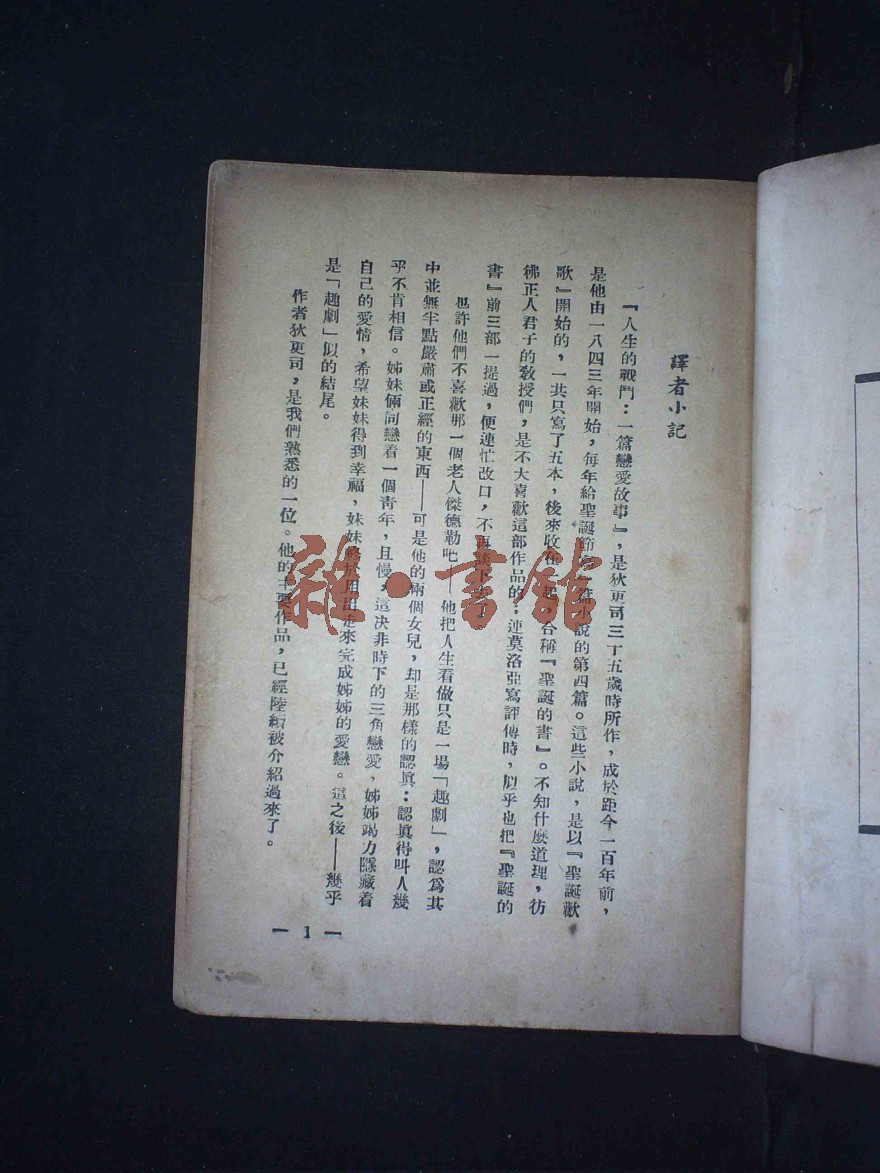 譯者小記
『人生的戰鬥：一篇戀愛故事』，是狄更司三十五歲時所作，成於距今一百年前，
是他由一八四三年開始，每年給聖誕節寫一篇小說的第四篇。這些小說，是以『聖誕歡
歌』開始的，一共只寫了五本，後來收在一起，合稱『聖誕的書』。不知什麼道理，彷
彿正人君子的敎授們，是不大喜歡這部作品的；連莫洛亞寫評傳時，似乎也把『聖誕的
書』前三部一提過，便連忙改口，不再談下去了。
也許他們不喜歡那一個老人傑德勒吧——他把人生看做只是一場「趣劇」，認爲其
中並無半點嚴肅或正經的東西——可是他的兩個女兒，却是那樣的認眞：認眞得叫人幾
乎不肯相信。姊妹倆同戀着一個靑年，且慢，這決非時下的三角戀愛，姊姊竭力隱藏着
自己的愛情，希望妹妹得到幸福，妹妹終於用出走來完成姊姊的愛戀。這之後——幾乎
是「趣劇」似的結尾。
作者狄更司，是我們熟悉的一位。他的主要作品，已經陸續被介紹過來了。
— 1 —
雜·書館